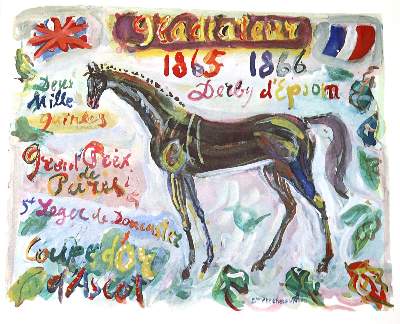 Gladiateur
1865 1866
Derby d'Epsom
Deux
Mille
guinées
Grand Prix
de
Paris
St Leger de Doncaster
Coupe d'Or
d'Ascot